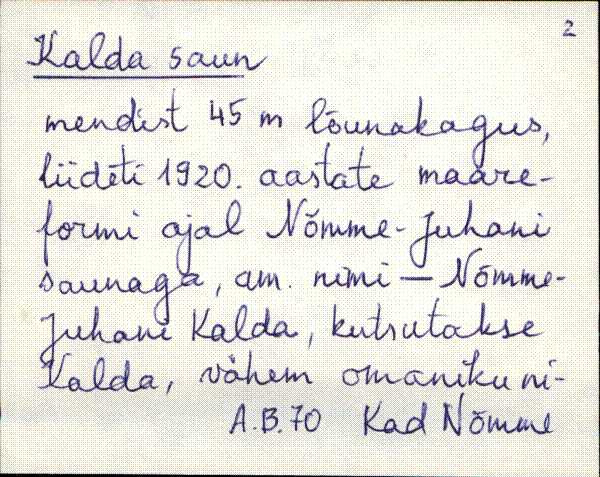 2
Kalda saun
mendist 45 m lõunakagus,
liideti 1920. aastate maare-
formi ajal Nõmme-Juhani
saunaga, am. nimi — Nõmme-
Juhani Kalda, kutsutakse
Kalda, vähem omaniku ni-
A.B.70 Kad Nõmme